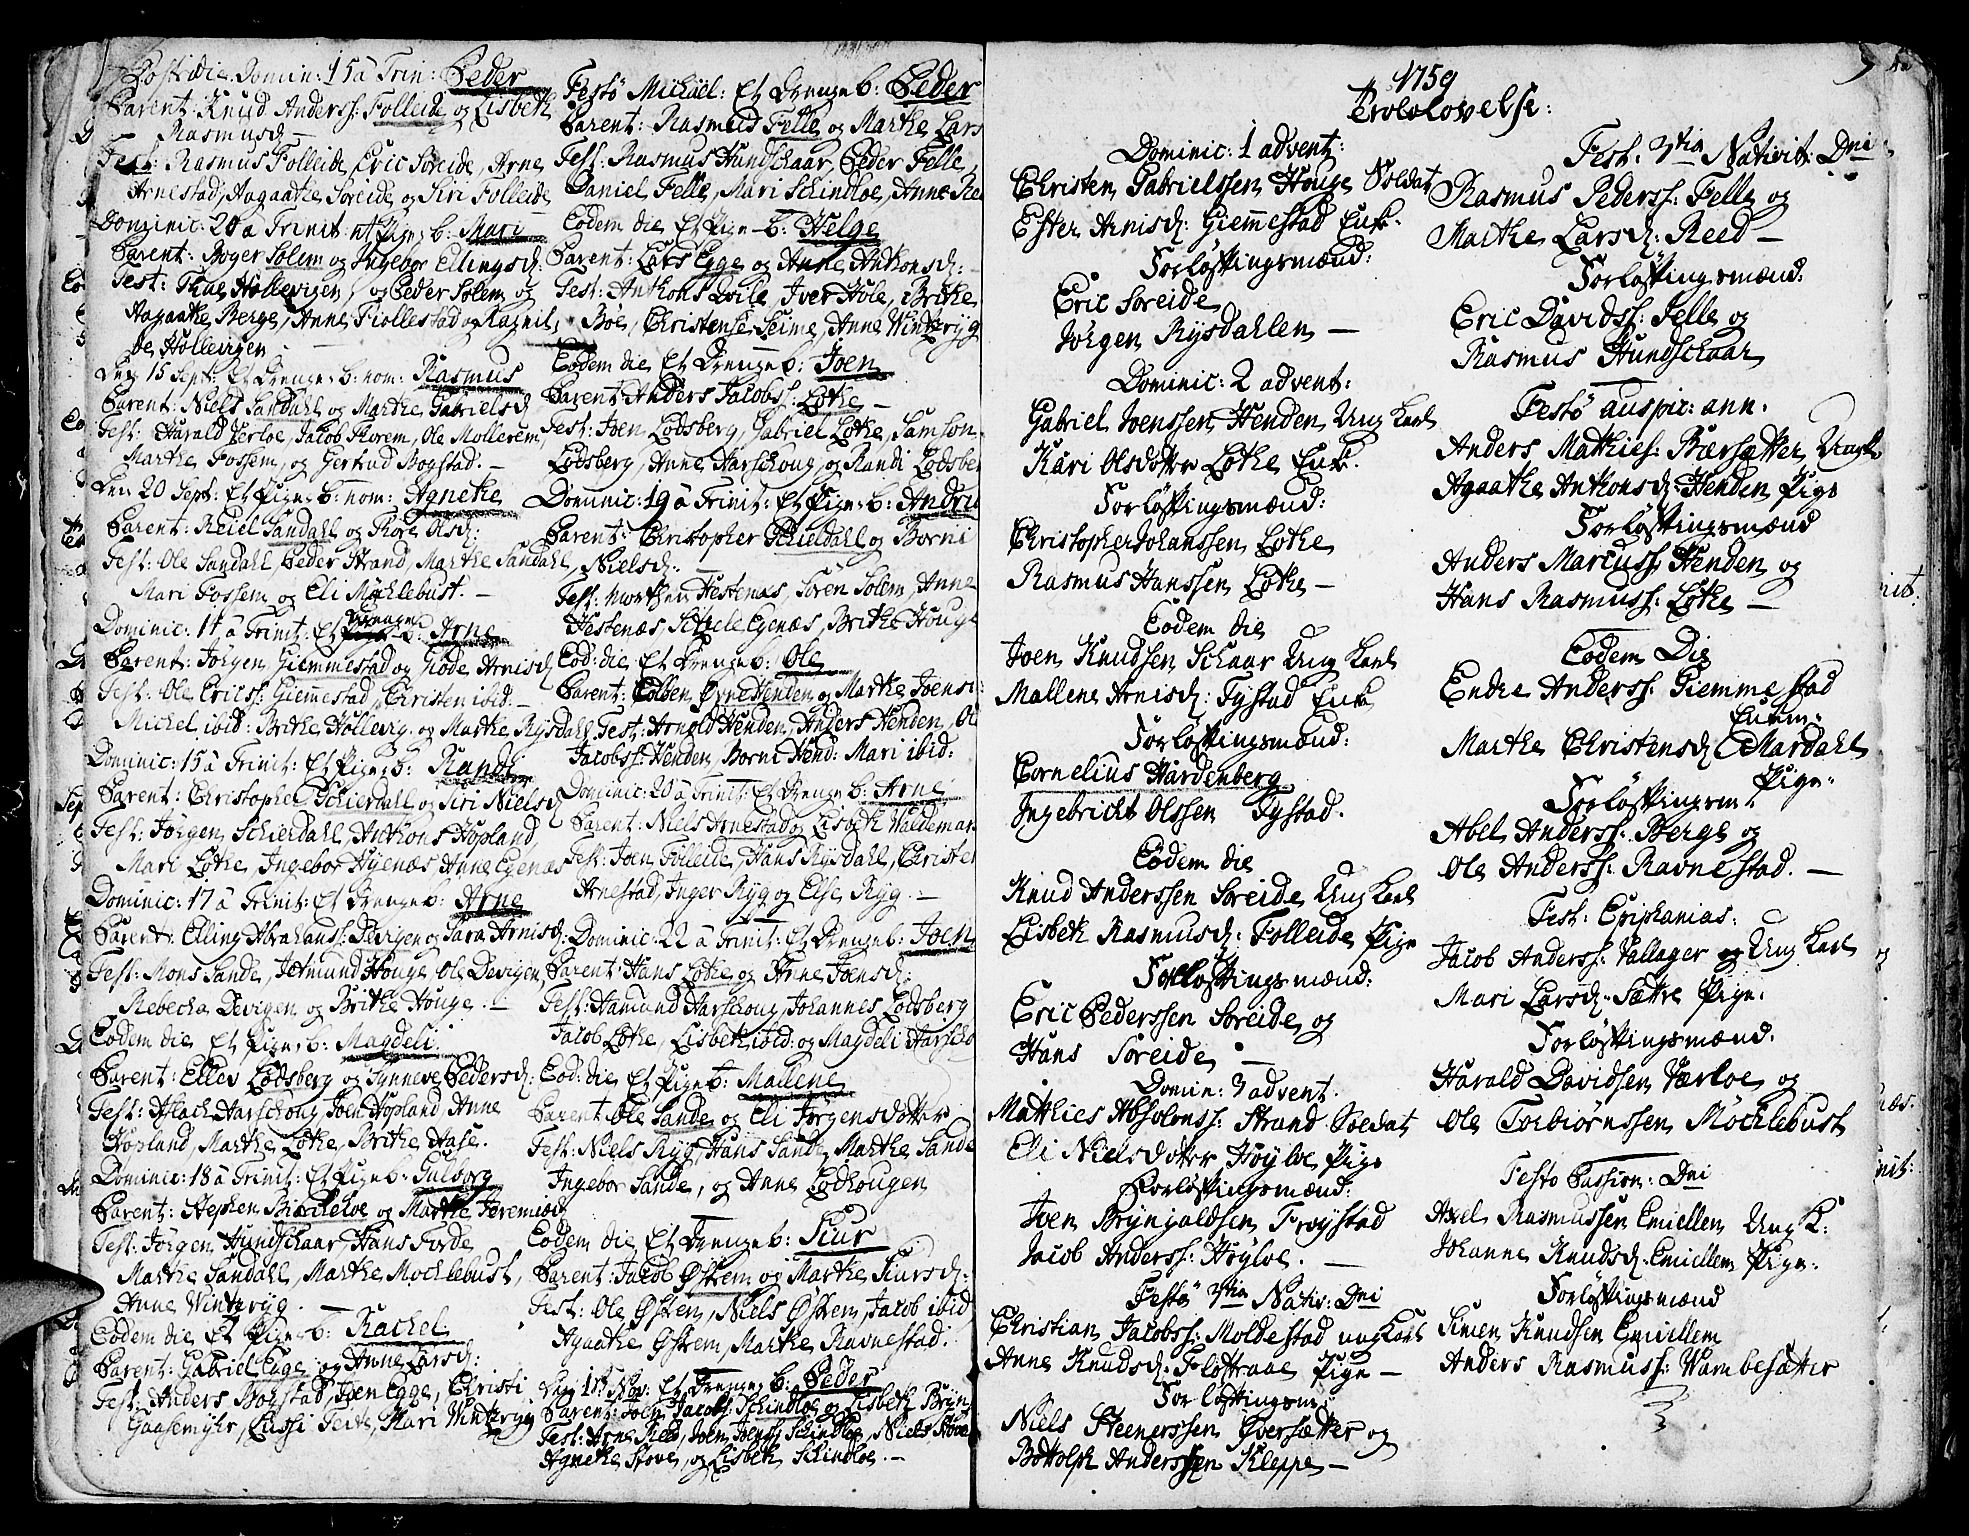 Postridie Domin: 15 â Trin: Peder
Parent: Knud Anderss: Folleide og Lisbeth
Rasmusd –
Test: Rasmus Folleide, Eric Soreide, Arne
Arnestad, Aagaathe Soreide og Siri Folleide
Dominic: 20 â Trinit: et Pigeb: Mari
Parent: Roger Solem og Ingebor Ellingsd:
Test: Thae Hollevigen, og Peder Solem og
Aagaathe Berge, Anne Fiollestad og Ragnil,
de Hollevigen
Den 15 Sept: Et Drenge b: nom: Rasmus
Parent: Niels Sandahl og Marthe Gabrielsd
Test: Harald Verloe, Jacob Florem, Ole Mollerem,
Marthe Fossem, og Gertrud Bogstad. –
Den 20 Sept: Et Pige b: nom: Agnethe
Parent: Reiel Sandahl og Thore Olsd:
Test: Ole Sandahl, Peder Strand, Marthe Sandahl,
Mari Fossem og Eli Mochlebust. –
Dominic: 11 â Trinit: Et Drenge b: Arne
Parent: Jörgen Giemmestad og Giöde Arnisd
Test: Ole Ericss: Giemestad, Christen ibid. –
Michel ibid: Brithe Hollevig og Marthe Rysdahl
Dominic: 15 â Trinit: Et Pige b: Randi
Parent: Christopher Schierdahl og Siri Nielsd
Test: Jörgen Schierdahl, Anthons Hopland,
Mari Lothe, Ingebor Hyenæs Anne Egenæs
Dominic: 17 â Trinit: Et Drenge b: Arne
Parent: Elling Abrahamss: Devigen og Sara Arnisd:
Test: Mons Sande, Jetmund Houge Ole Devigen,
Rebecha Devigen og Brithe Houge. –
Eodem die Et Pige b: Magdeli.
Parent: Ellev Lodsberg og Synneve Pedersd:
Test: Aslach Harschoug Joen Hopland, Anne
Hopland, Marthe Lothe, Brithe Aase.
Dominic: 18 â Trinit: Et Pige b: Gulborg
Parent: Stephen Birckeloe og Marthe Jeremiæd
Test: Jörgen Hundschaar, Hans Forde
Marthe Sandahl, Marthe Mochlebust,
Anne Winteryg. –
Eodem die Et Pige b: Rachel
Parent: Gabriel Euge og Anne Larsd:
Test: Anders Bogstad, Joen Egge, Christi
Gaasemyhr, Lussi Seite, Mari Winteryg
Festô Michäel: Et Drenge b: Peder
Parent: Rasmus Felle og Marthe Lars
Test: Rasmus Hundschaar, Peder Felle,
Daniel Felle, Mari Schindloe, Anne Ree
Eodem die Et Pige b: Helge
Parent: Lars Egge og Anne Anthonsd: –
Test: Anthons Qvile, Iver Hole, Brithe
Boe, Christense Seime, Anne Winteryg
Eodem die Et Drenge b: Joen
Parent: Anders Jacobs: Lothe –
Test: Joen Lodsberg, Gabriel Lothe, Samson
Lodsberg, Anne Harschoug, og Randi Lodsber
Dominic: 19 â Trinit: Et Pige b: Andru
Parent: Christopher Schieldahl og Borni
Nielsd: –
Test: Morthen Hestenæs, Sören Solem, Anne
Hestenæs, Sitzele Egenæs, Brithe Houge
Eod: die Et Drenge b: Ole
Parent: Colben Ovrehenden og Marthe Joensd:
Test: Arnold Henden, Anders Henden, Ol
Jacobss: Henden, Borni Hend: Mari ibid:
Dominic: 20 â Trinit: Et Drenge b: Arne
Parent: Niels Arnestad og Lisbeth Waldemar
Test: Joen Folleide, Hans Rysdahl, Christen
Arnestad, Inger Ryg og Else Ryg. –
Dominic: 22 â Trinit: Et Drenge b: Joen
Parent: Hans Lothe og Anne Joensd:
Test: Hamund Harschoug, Johannes Lodsberg
Jacob Lothe, Lisbeth ibid: og Magdeli Harscho
Eod: die Et Pige b: Mallene
Parent: Ole Sande og Eli Jorgensdotter
Test: Niels Ryg, Hans Sande, Marthe Sande
Ingebor Sande, og Anne Lodhougen
Eodem die Et Drenge b: Siur
Parent: Jacob Østrem og Marthe Siursd:
Test: Ole Østrem, Niels Østrem, Jacob ibid
Agaathe Østrem, Marthe Ravnestad.
Den 18 Nov: Et Drenge b: Peder
Parent: Joen Jacobs: Schindloe og Lisbeth Bryn
Test: Arne Reed, Joen Joenss: Schindloe, Niels Stove
Agnethe Stove, og Lisbeth Schindloe. –
1759
Trolololovelse:
Dominic: 1 advent:
Christen Gabrielssen Houge Soldat
Ester Arnisd: Giemestad Enk.
Forlöftingsmænd:
Eric Soreide
Jörgen Rysdahlen –
Dominic: 2 advent:
Gabriel Joenssen Henden Ung Karl
Kari Olsdotter Lothe Enk.
Forlöftingsmænd:
Christopher Johanssen Lothe
Rasmus Hanssen Lothe –
Eodem die
Joen Knudsen Schaar Ung Karl
Mallene Arnisd: Tystad Enk
Forlöftingsmænd:
Cornelius Hardenberg
Ingebricht Olssen Tystad.
Eodem die
Knud Anderssen Soreide Ung Karl
Lisbeth Rasmusd: Folleide Pige
Forlöftingsmænd:
Eric Pederssen Soreide og
Hans Soreide –
Domin: 3 advent.
Matthies Absolonss: Strand Soldat
Eli Nielsdotter Höyloe Pige
Forlöftingsmænd:
Joen Brynjaldsen Fröystad
Jacob Anderss: Höyloe. –
Festô 3tia Nativ: Dni
Christian Jacobss: Moldestad ung Karl
Anne Knudsd: Flottraae Pige –
Forlöftingsm:
Niels Steenerssen Øversætter og
Bottolph Anderssen Kleppe –
Fest. 3tia Nativit: Dni
Rasmus Pederss: Felle og
Marthe Larsd: Reed –
Forlöftingsmænd:
Eric Davidss: Felle og
Rasmus Hundschaar
Festô auspic: ann.
Anders Mathies: Bærsætter Ungk
Agaathe Anthonsd: Henden Pige
Forlöftingsmænd
Anders Marcuss: Henden og
Hans Rasmuss: Lothe –
Eodem Die
Endre Anderss: Giemmestad
Enkm:
Marthe Christensd Mardahl
Pige:
Forlöftingsm:
Abel Anderss: Berge og
Ole Anderss: Ravnestad. –
Fest: Epiphanias:
Jacob Anderss: Vallager og Ung Karl
Mari Larsd: Sættre Pige.
Forlöftingsmænd.
Harald Davidsen Værloe og
Ole Torbiörnssen Möchlebust
Festo Passion: Dni
Axel Rasmussen Emiellem Ung K:
Johanne Knudsd: Emiellem Pige.
Forlöftingsmænd
Simen Knudsen Emiellem
Anders Rasmuss: Warnbesætter